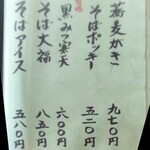 蕎麦がき 九七〇円
そばポッキー 五二〇円
黒みつ寒天 六〇〇円
そば大福 八五〇円
そばアイス 五八〇円